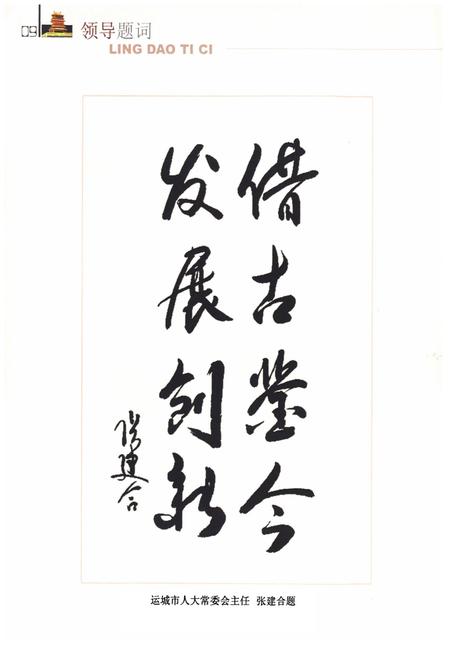 09
领导题词
LING DAO TI CI
借古鉴今
发展创新
张建合
运城市人大常委会主任 张建合题